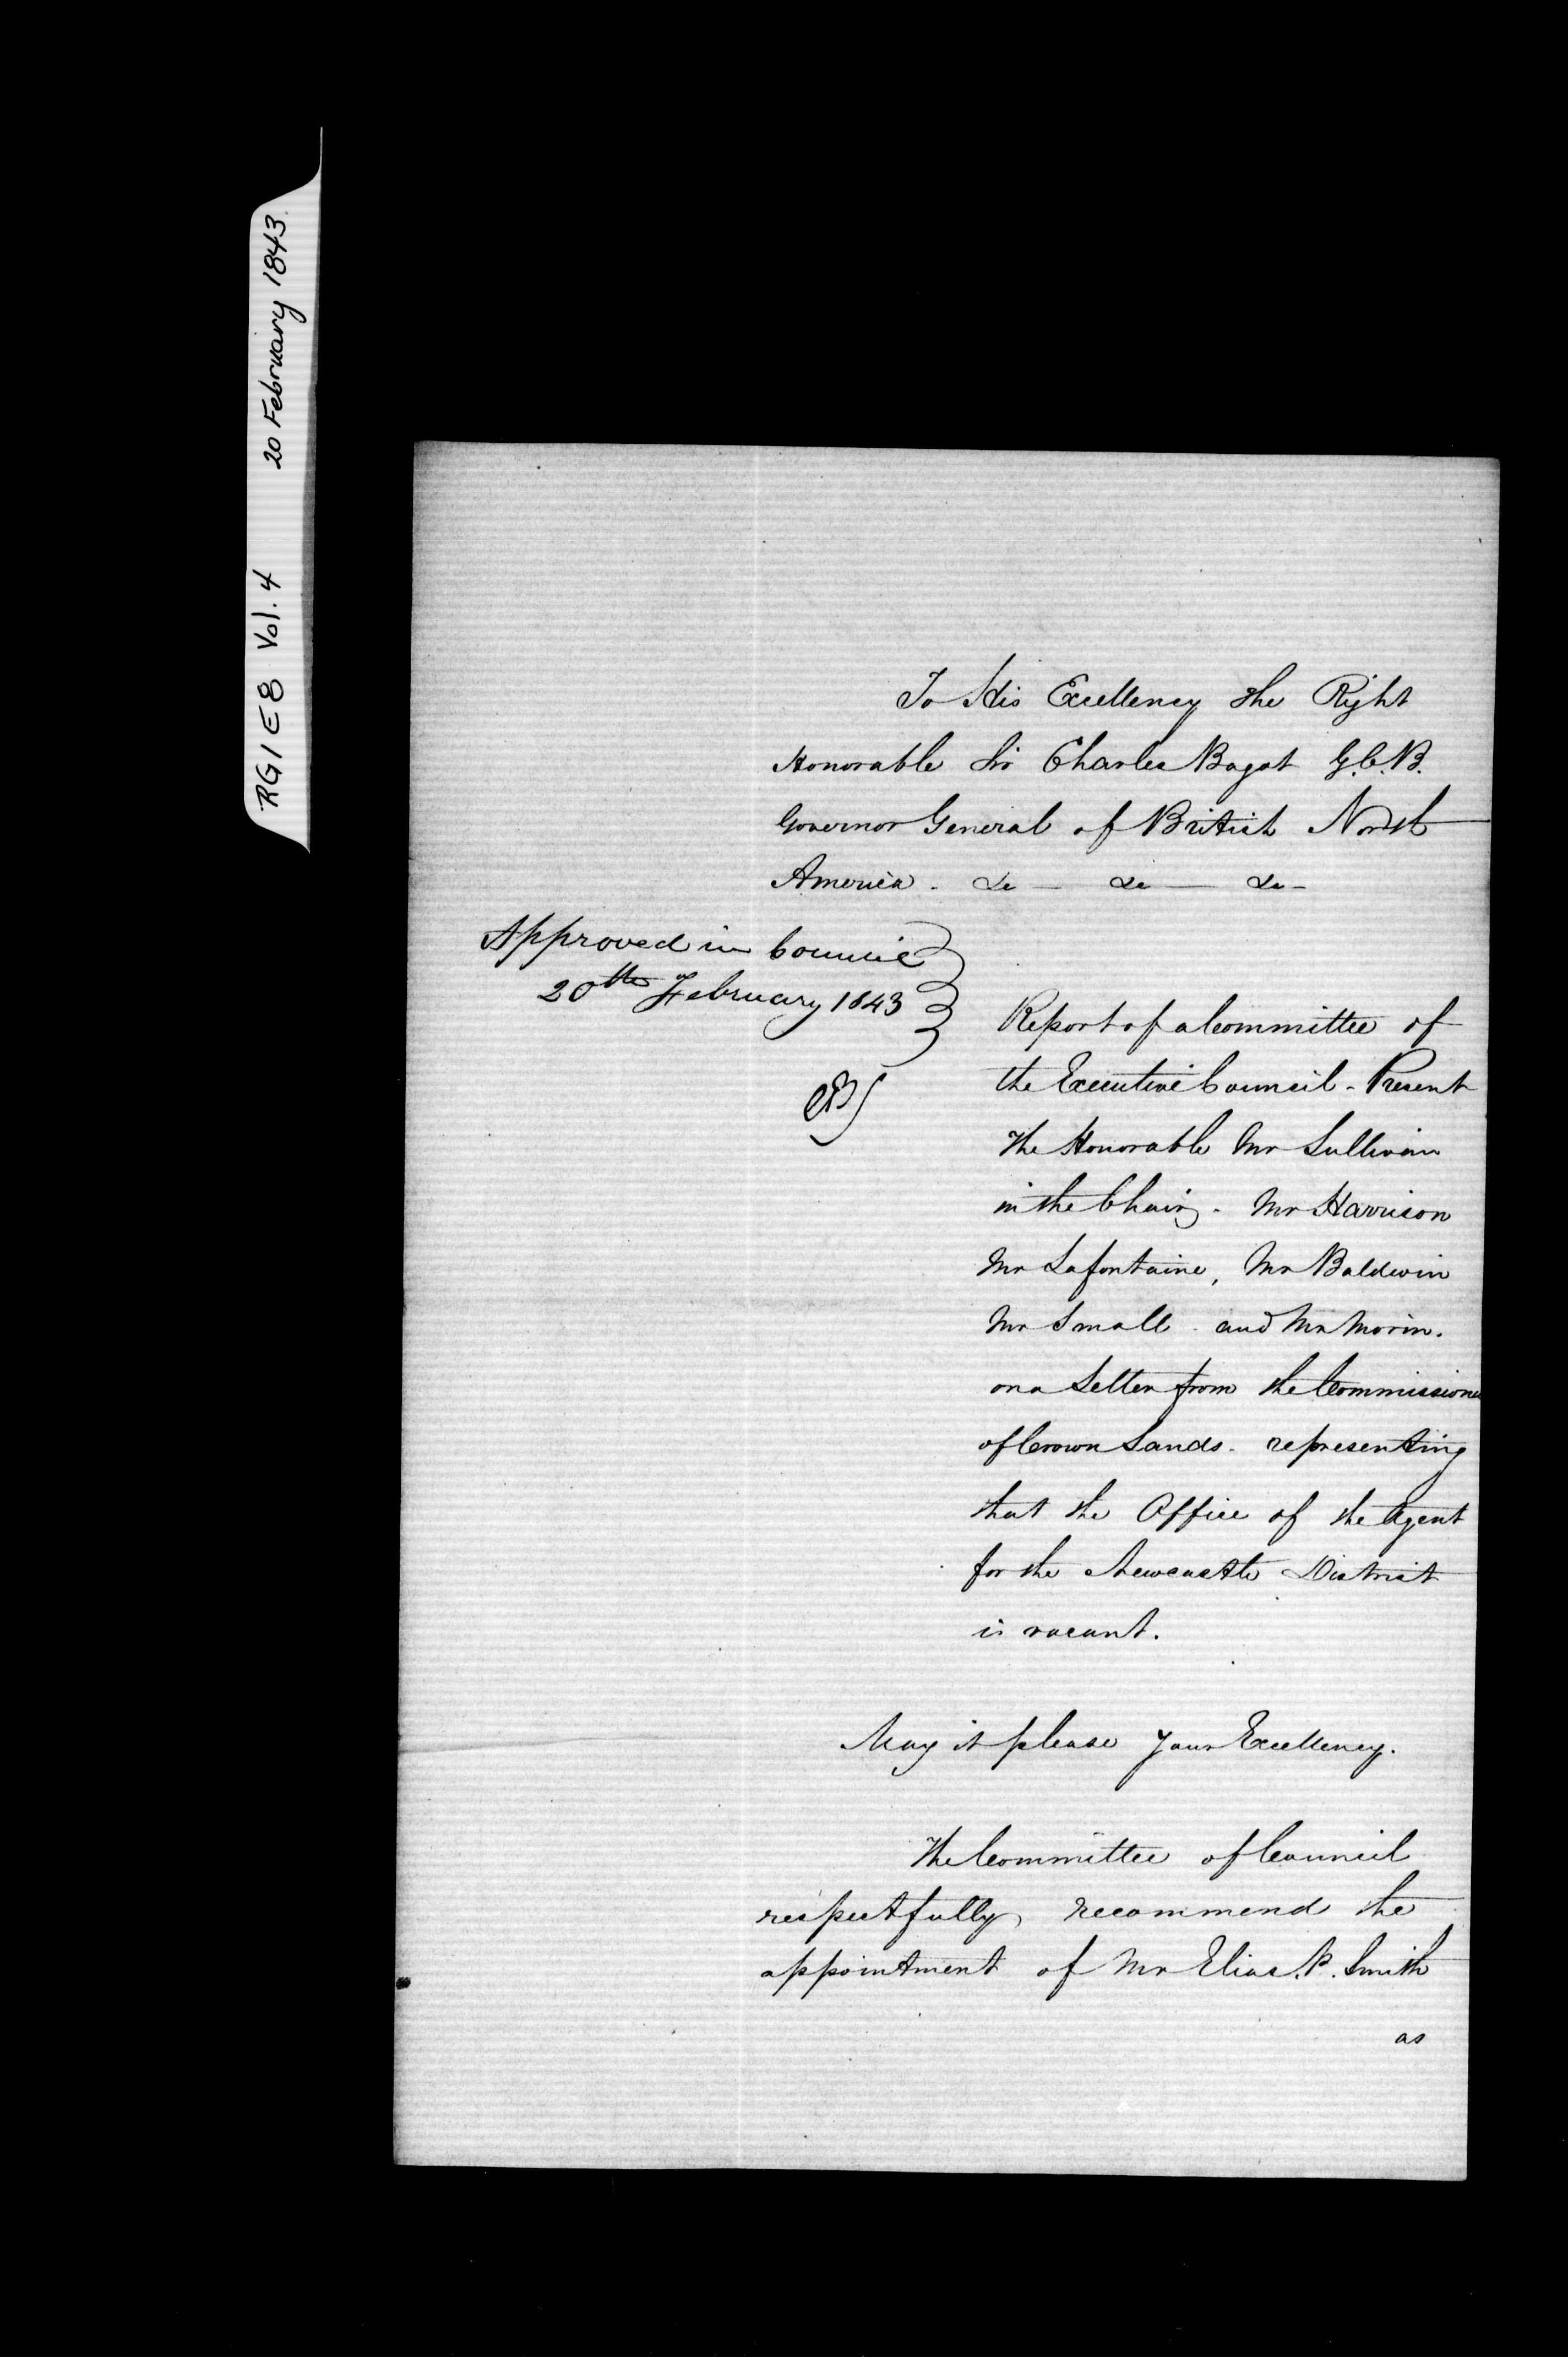 RG1 E8 Vol. 4 20 February 1843.
To His Excellency the Right
Honorable Sir Charles Bagot G.C.B.
Governor General of British North
America. &c — &c — &c —
Approved in Council
20th February 1843
CB
Report of a Committee of
the Executive Council - Present
The Honorable Mr Sullivan
in the Chair, - Mr Harrison
Mr Lafontaine, Mr Baldwin
Mr Small - and Mr Morin.
on a Letter from the Commissioner
of Crown Lands - representing
that the Office of the Agent
for the Newcastle District
is vacant.
May it please Your Excellency.
The Committee of Council
respectfully recommend the
appointment of Mr Elias. P. Smith
as